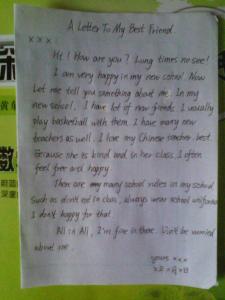 A Letter To My Best Friend
x x x :
Hi ! How are you ? Lung times no see!
I am very happy in my new school. Now
Let me tell you something about me. In my
new school. I have lot of new friends. I usually
play basketball with them. I have many new
teachers as well. I love my Chinese teacher best.
Because she is kind and in her class, I often
feel free and happy.
There are many school rules in my school
Such as don't eat in class, always wear school uniforms
I don't happy for that.
All in All, I'm fine in there. Don't be worried
about me.
yours xxx
x年x月x日
深
数